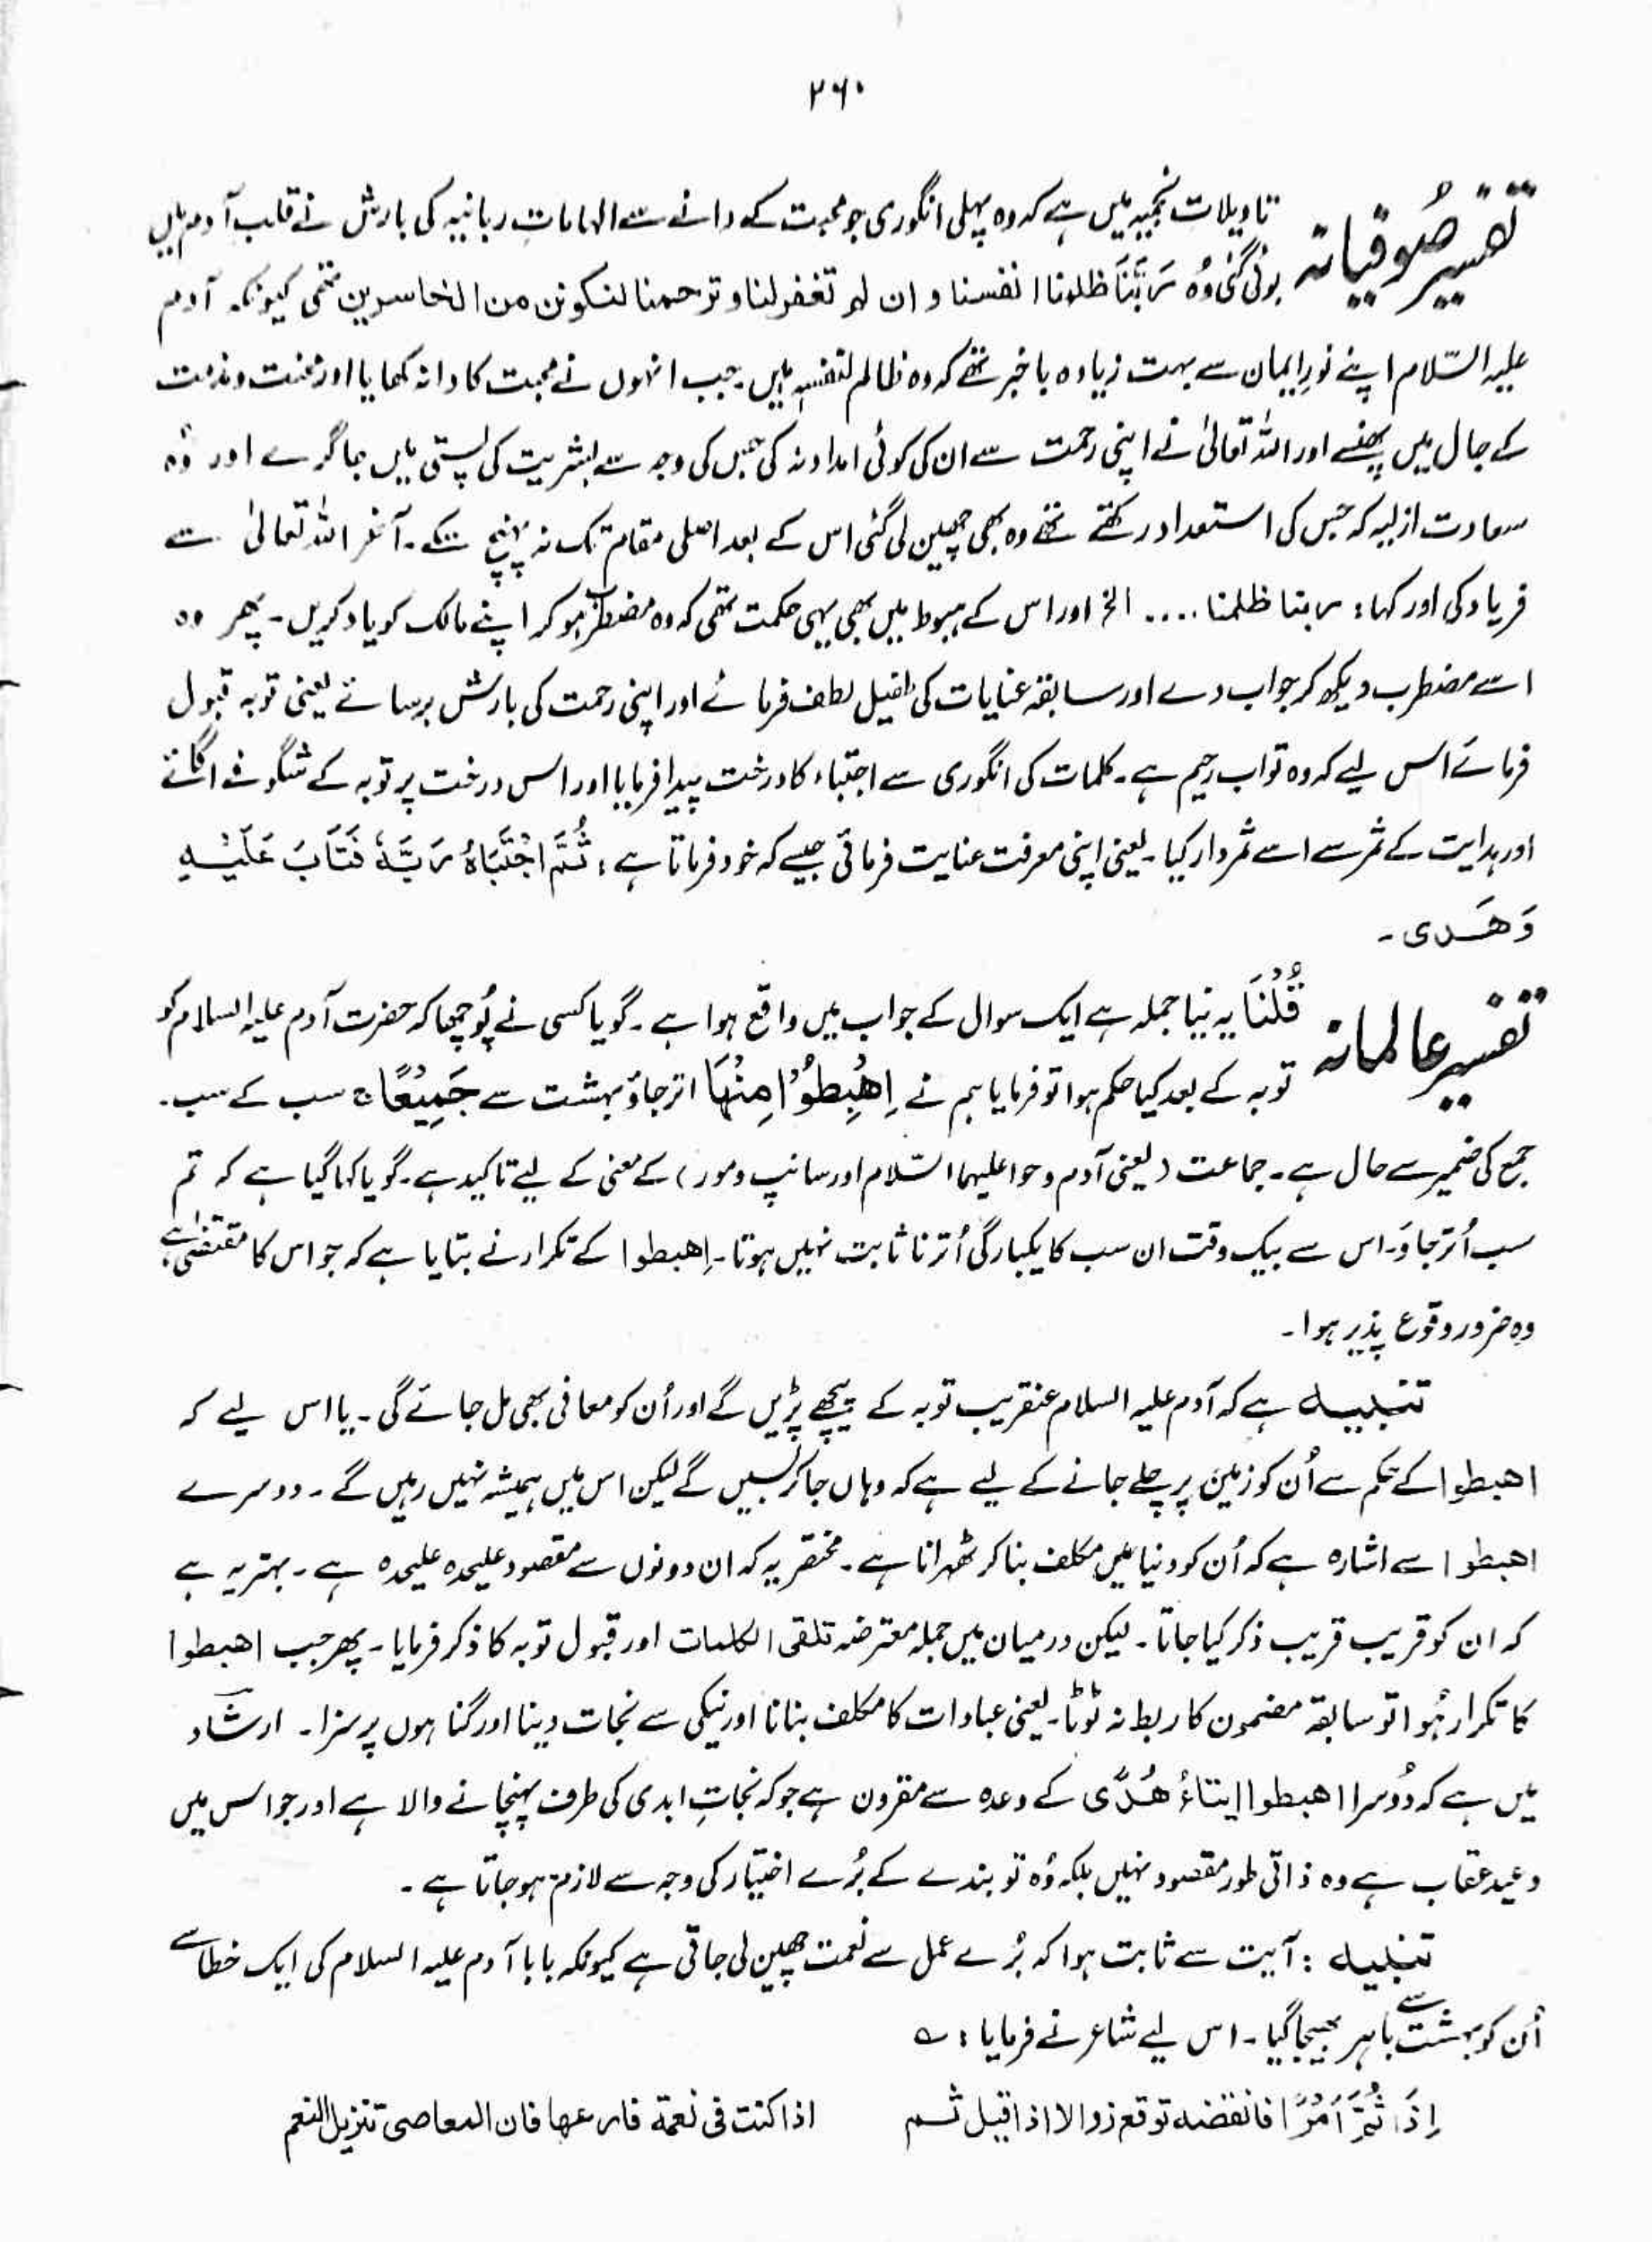 ۲۶۰
تفسیر صوفیانہ تاویلات نجمیہ میں ہے کہ وہ پہلی انگوری جو محبت کے دانے سے الہامات ربانیہ کی بارش نے قلب آدم میں
بوئی گئی وُہ رَبَّنَا ظلمنا انفسنا و ان لم تغفرلنا و ترحمنا لنکونن من الخاسرین تھی کیونکہ آدم
علیہ السّلام اپنے نورِ ایمان سے بہت زیادہ باخبر تھے کہ وہ ظالم لنفسہٖ ہیں۔ جب انہوں نے محبت کا دانہ کھایا اور محنت و مذمت
کے جال میں پھنسے اور اللہ تعالیٰ نے اپنی رحمت سے ان کی کوئی امداد نہ کی جس کی وجہ سے بشریت کی پستی میں جا گرے اور وُہ
سعادت ازلیہ کہ جس کی استعداد رکھتے تھے وہ بھی چھین لی گئی اس کے بعد اصلی مقام تک نہ پہنچ سکے۔ آخر اللہ تعالیٰ سے
فریاد کی اور کہا: ربنا ظلمنا .... الخ اور اس کے ہبوط میں بھی یہی حکمت تھی کہ وہ مضطرب ہو کر اپنے مالک کو یاد کریں۔ پھر وہ
اسے مضطرب دیکھ کر جواب دے اور سابقہ عنایات کی طفیل لطف فرمائے اور اپنی رحمت کی بارش برسائے یعنی توبہ قبول
فرمائے اس لیے کہ وہ تواب رحیم ہے۔ کلمات کی انگوری سے اجتباء کا درخت پیدا فرمایا اور اس درخت پر توبہ کے شگوفے اگائے
اور ہدایت کے ثمر سے اسے ثمردار کیا۔ یعنی اپنی معرفت عنایت فرمائی جیسے کہ خود فرماتا ہے: ثُمَّ اجْتَبَاہُ رَبَّہٗ فَتَابَ عَلَیْہِ
وَھَدی۔
تفسیر عالمانہ قُلْنَا یہ نیا جملہ ہے ایک سوال کے جواب میں واقع ہوا ہے۔ گویا کسی نے پُوچھا کہ حضرت آدم علیہ السلام کو
توبہ کے بعد کیا حکم ہوا تو فرمایا ہم نے اِھْبِطُوْا مِنْہَا اتر جاؤ بہشت سے جَمِیْعًا ہ سب کے سب۔
جمع کی ضمیر سے حال ہے۔ جماعت (یعنی آدم و حوا علیہما السّلام اور سانپ و مور) کے معنی کے لیے تاکید ہے۔ گویا کہا گیا ہے کہ تم
سب اُتر جاؤ۔ اس سے بیک وقت ان سب کا یکبارگی اُترنا ثابت نہیں ہوتا۔ اِھبطوا کے تکرار نے بتایا ہے کہ جو اس کا مقتضیٰ ہے
وہ ضرور وقوع پذیر ہوا۔
تنبیہ ہے کہ آدم علیہ السلام عنقریب توبہ کے پیچھے پڑیں گے اور اُن کو معافی بھی مل جائے گی۔ یا اس لیے کہ
اھبطوا کے حکم سے اُن کو زمین پر چلے جانے کے لیے ہے کہ وہاں جا کر بسیں گے لیکن اس میں ہمیشہ نہیں رہیں گے۔ دوسرے
اھبطوا سے اشارہ ہے کہ اُن کو دنیا میں مکلف بنا کر ٹھہرانا ہے۔ مختصر یہ کہ ان دونوں سے مقصود علیحدہ علیحدہ ہے۔ بہتر یہ ہے
کہ ان کو قریب قریب ذکر کیا جاتا۔ لیکن درمیان میں جملہ معترضہ تلقی الکلمات اور قبول توبہ کا ذکر فرمایا۔ پھر جب اھبطوا
کا تکرار ہُوا تو سابقہ مضمون کا ربط نہ ٹوٹا۔ یعنی عبادات کا مکلف بنانا اور نیکی سے نجات دینا اور گناہوں پر سزا۔ ارشاد
میں ہے کہ دُوسرا اھبطوا ایتاءُ ھُدًی کے وعدہ سے مقرون ہے جو کہ نجاتِ ابدی کی طرف پہنچانے والا ہے اور جو اس میں
وعید عقاب ہے وہ ذاتی طور مقصود نہیں بلکہ وُہ تو بندے کے بُرے اختیار کی وجہ سے لازم ہو جاتا ہے۔
تنبیہ: آیت سے ثابت ہوا کہ بُرے عمل سے نعمت چھین لی جاتی ہے کیونکہ بابا آدم علیہ السلام کی ایک خطا سے
اُن کو بہشت سے باہر بھیجا گیا۔ اس لیے شاعر نے فرمایا: ؎
اِذَا ثُمَّ اَمْرًا فانقضہ توقع زوالا اذا قیل ثم اذا کنت فی نعمۃ فارعھا فان المعاصی تنزیل النعم